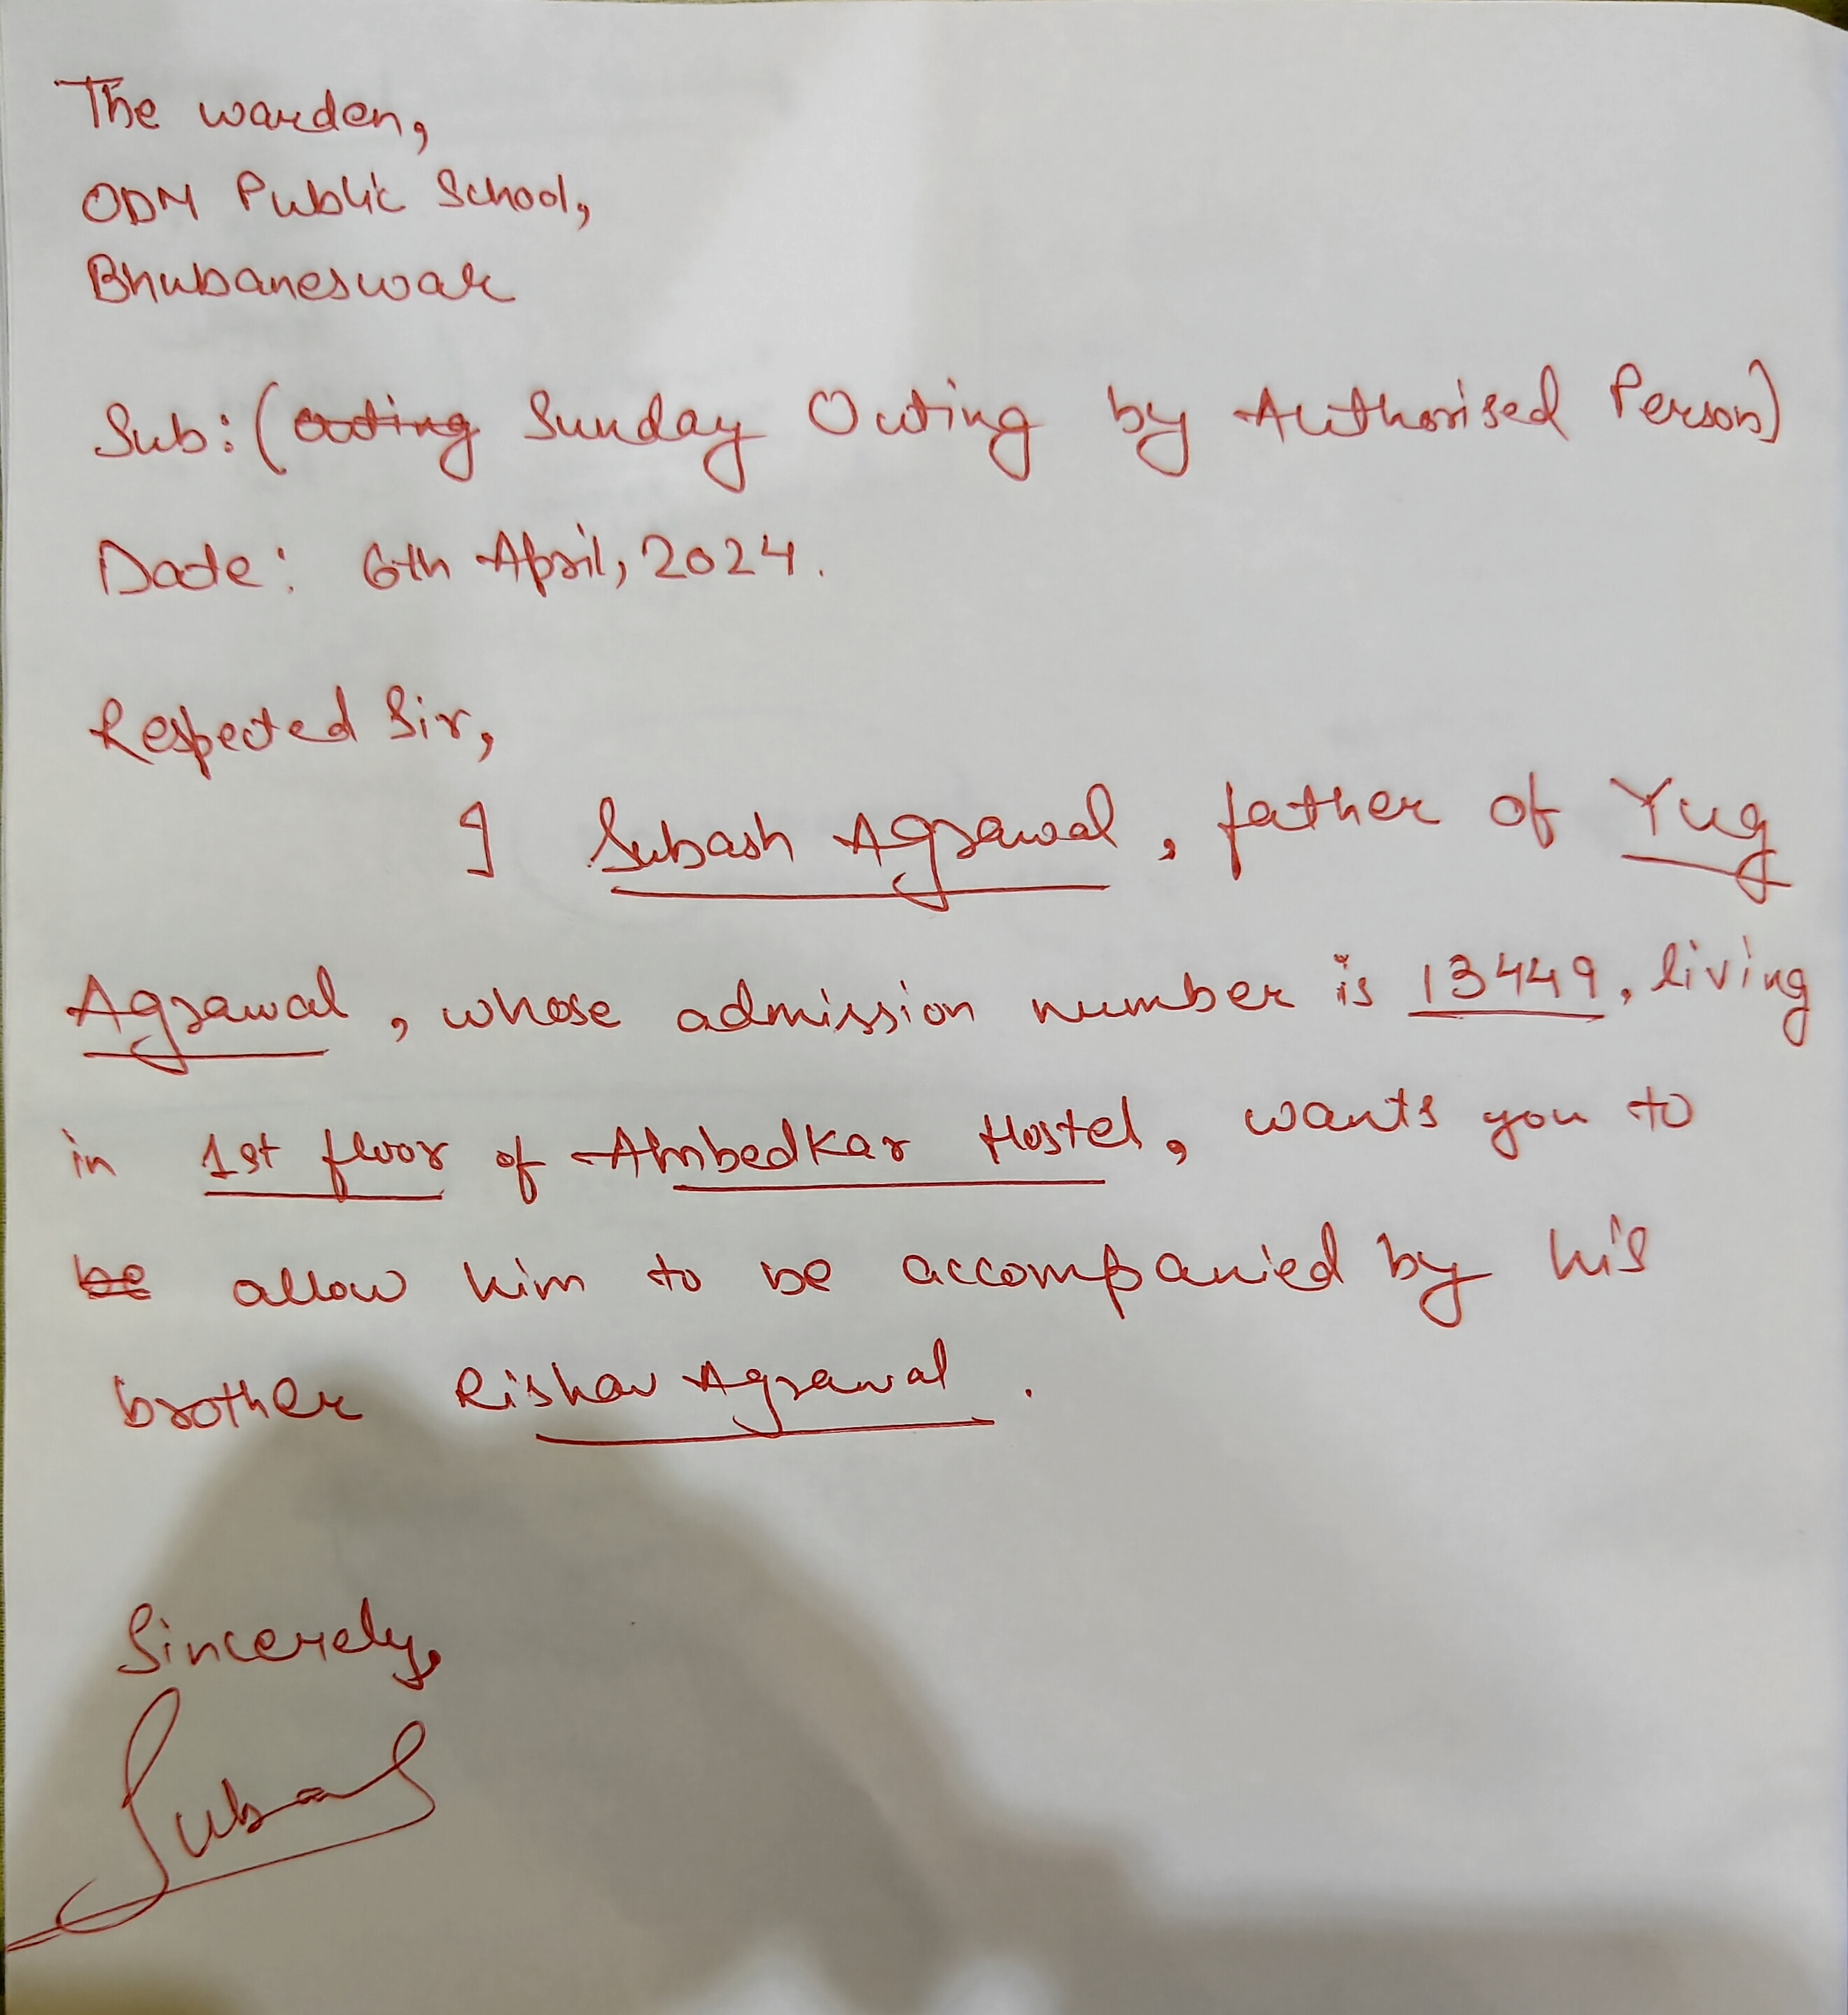 The warden,
ODM Public School,
Bhubaneswar
Sub: (outing Sunday Outing by Authorised Person)
Date: 6th April, 2024.
Respected Sir,
I Subash Agrawal, father of Yug
Agrawal, whose admission number is 13449, living
in 1st floor of Ambedkar Hostel, wants you to
be allow him to be accompanied by his
brother Rishav Agrawal.
Sincerely,
Subash